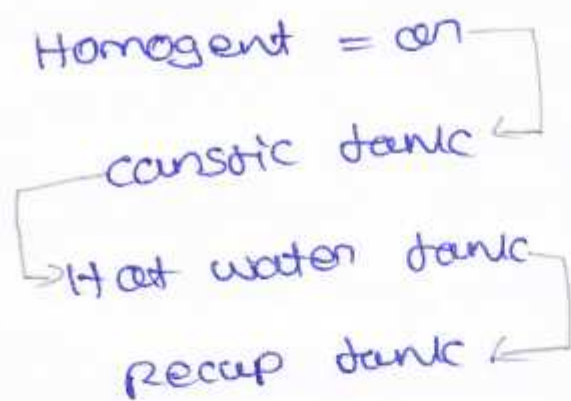 Homogent = on
canstic tank
Hot water tank
Recup tank